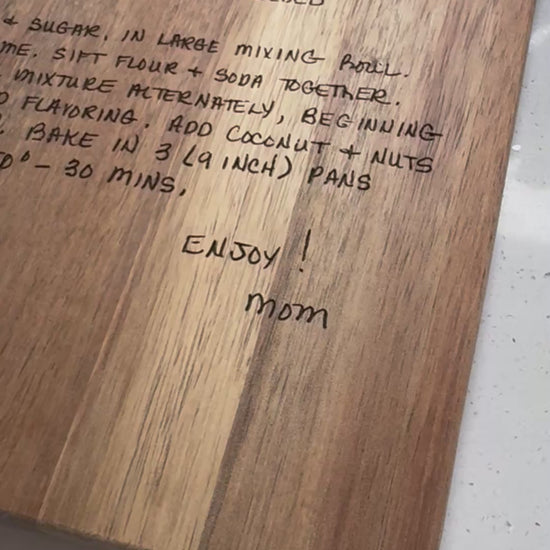 & SUGAR, IN LARGE MIXING BOWL.
SIFT FLOUR + SODA TOGETHER.
MIXTURE ALTERNATELY, BEGINNING
FLAVORING. ADD COCONUT & NUTS
BAKE IN 3 (9 INCH) PANS
0° - 30 MINS,
ENJOY!
MOM